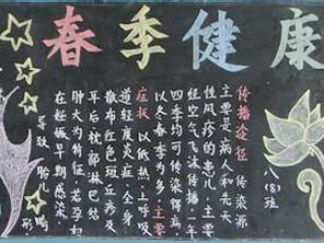 春季健康
传播途径 传染源
主要是病人和先天
性风疹的患儿,主要
经空气飞沫传播,一年
四季均可传染得病,
以冬春季为多,主要
症状 以低热、上呼吸
道轻度炎症、全身
散布红色斑丘疹及
耳后枕部淋巴结
肿大为特征,若孕妇
在妊娠早期感染,
导致胎儿畸
形
八(8)班